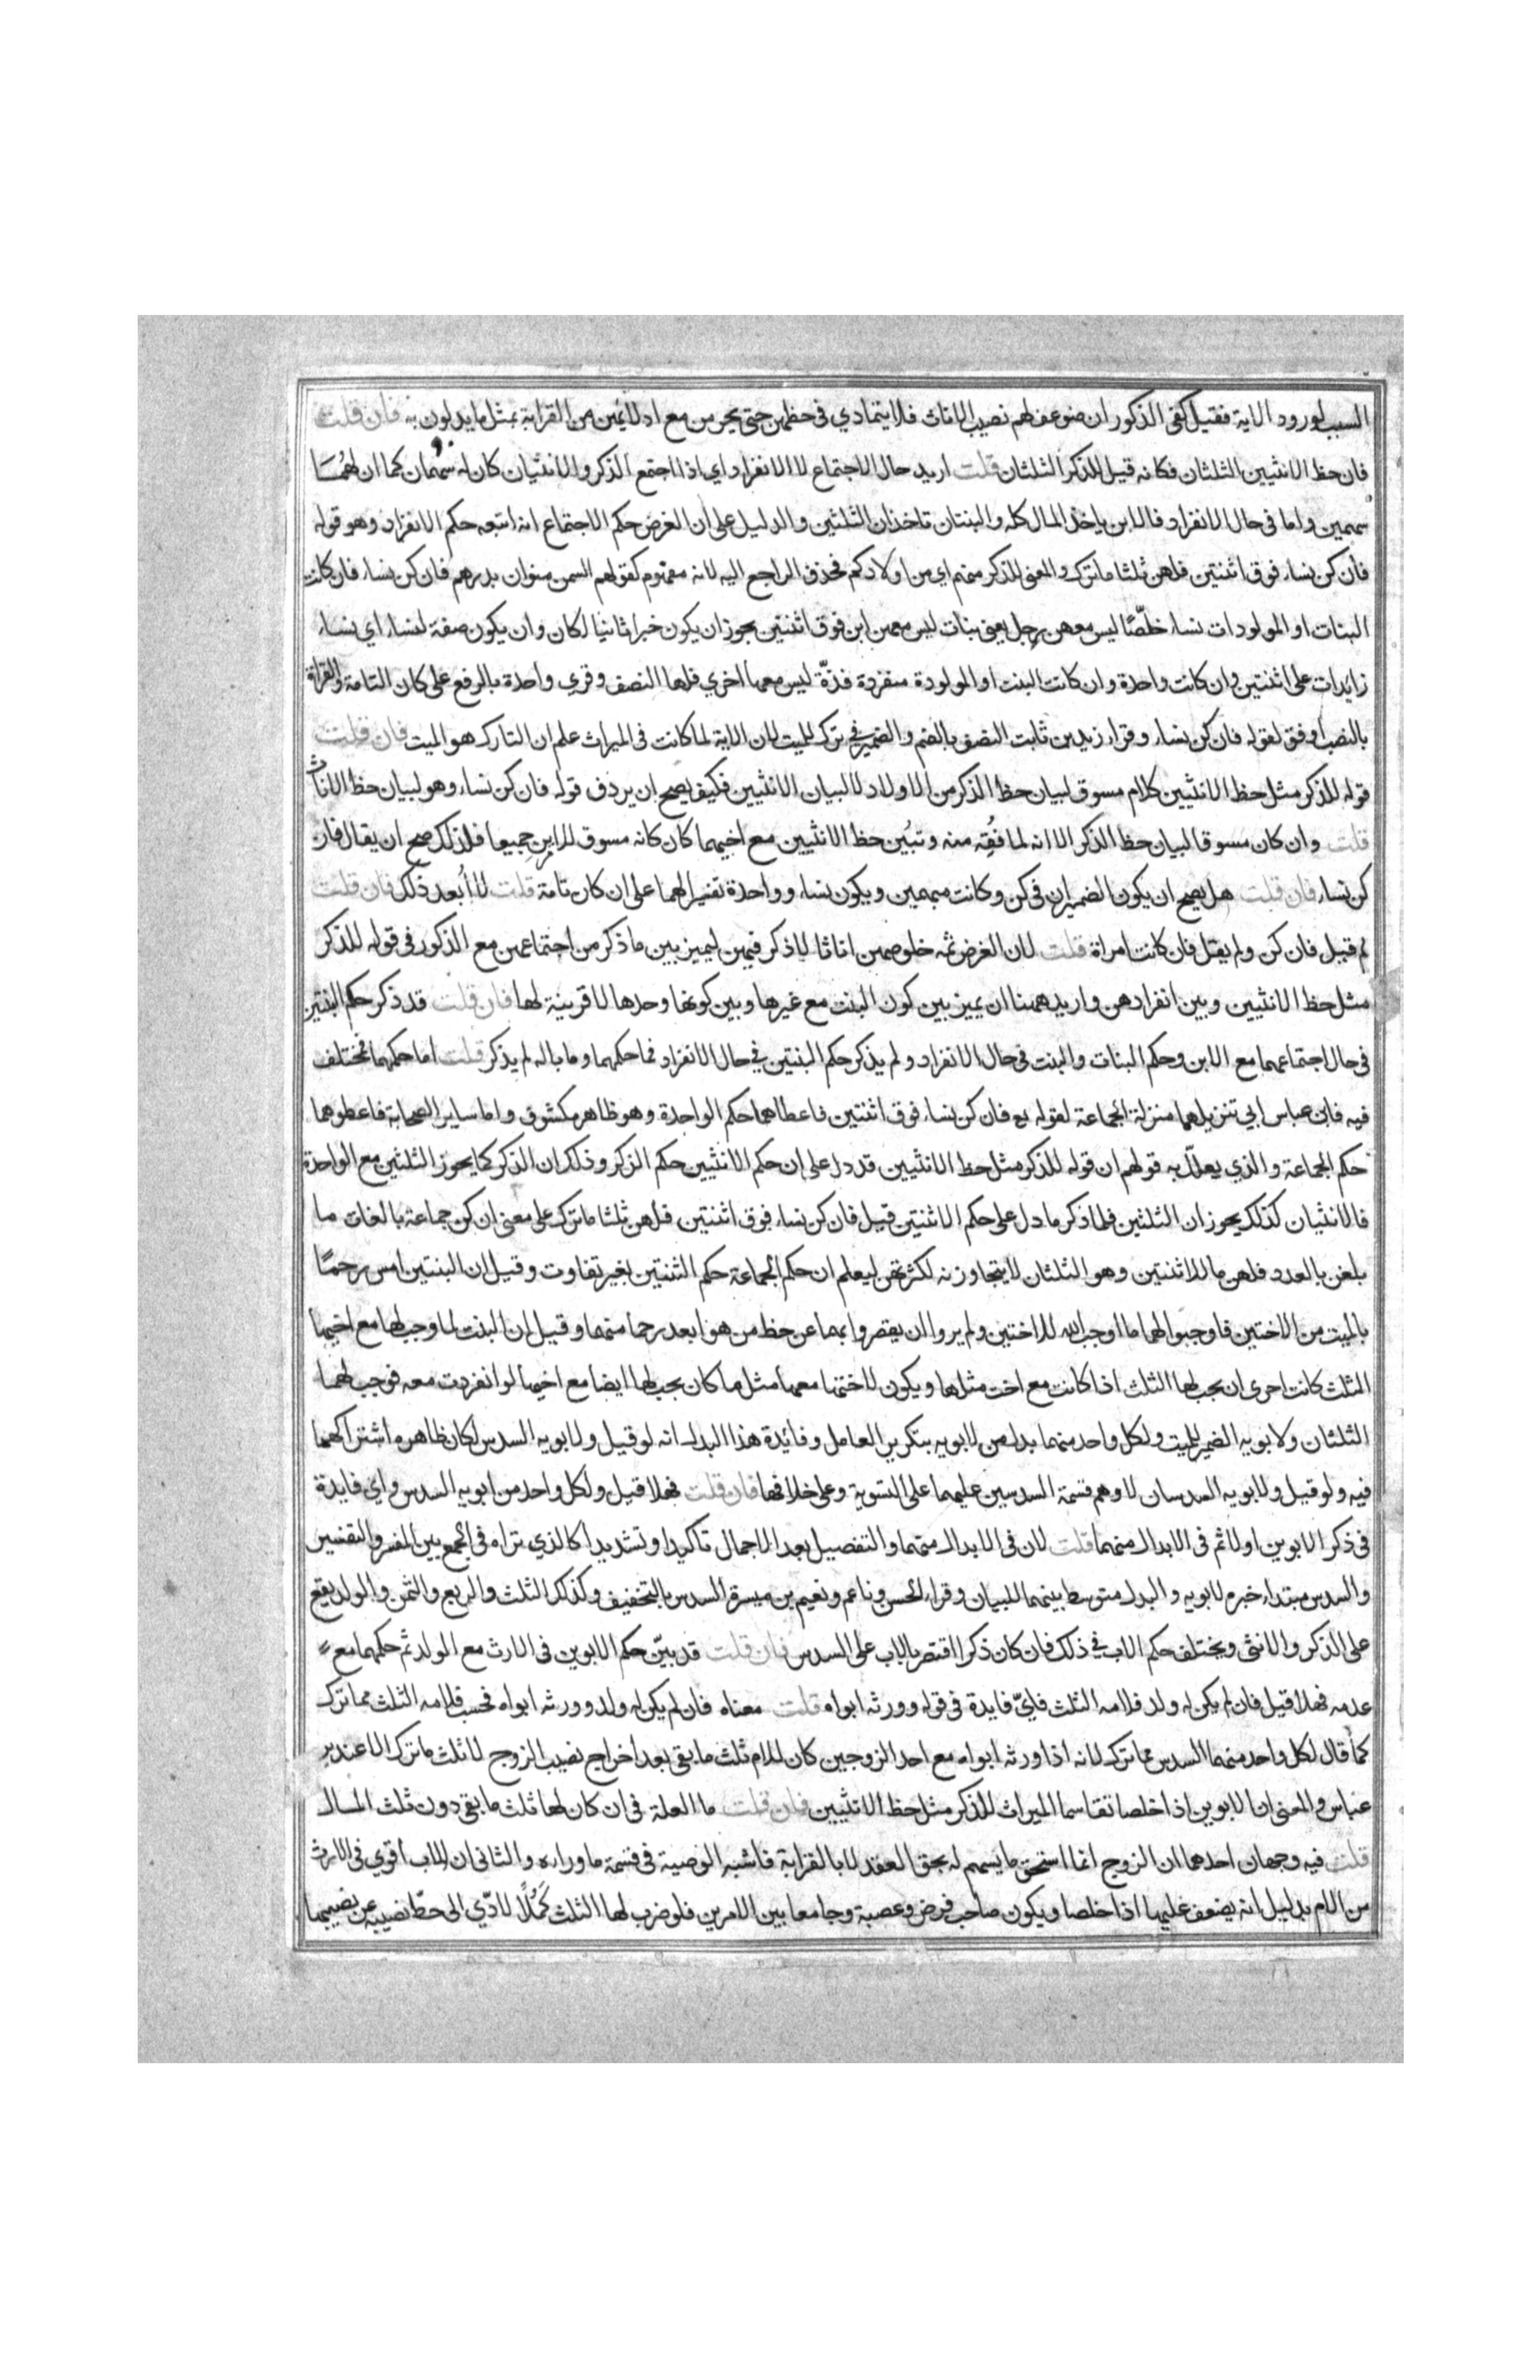 السبب لورود الاية فقيل كفى الذكور ان ضوعف لهم نصيب الاناث فلا يتمادي في حظهن حتى يحرمن مع ادلائهن من القرابة بمثل ما يدلون به فان قلت
فان حظ الانثيين الثلثان فكانه قيل للذكر الثلثان قلت اريد حال الاجتماع لا الانفراد اي اذا اجتمع الذكر والانثيان كان له سهمان كما ان لهما
سهمين واما في حال الانفراد فالابن ياخذ المال كله والبنتان تاخذان الثلثين والدليل على ان الغرض حكم الاجتماع انه اتبعه حكم الانفراد وهو قوله
فان كن نساء فوق اثنتين فلهن ثلثا ما ترك والمعنى للذكر منهم اي من اولادكم فحذف الراجع اليه لانه مفهوم كقولهم السمن منوان بدرهم فان كن نساء فان كانت
البنات او المولودات نساء خلصًا ليس معهن رجل يعنى بنات ليس معهن ابن فوق اثنتين يجوز ان يكون خبرا ثانيا لكان وان يكون صفة لنساء اي نساء
زايدات على اثنتين وان كانت واحدة وان كانت البنت او المولودة منفردة فذّة ليس معها اخري فلها النصف وقري واحدة بالرفع على كان التامة والقراة
بالنصب اوفق لقوله فان كن نساء وقراء زيد بن ثابت النصف بالضم والضمير في ترك للميت لان الاية لما كانت في الميراث علم ان التارك هو الميت فان قلت
قوله للذكر مثل حظ الانثيين كلام مسوق لبيان حظ الذكر من الاولاد لا لبيان الانثيين فكيف يصح ان يردف قوله فان كن نساء وهو لبيان حظ الاناث
قلت وان كان مسوقا لبيان حظ الذكر الا انه لما فُقِه منه وتبُين حظ الانثيين مع اخيهما كان كانه مسوق للامرين جميعا فلذلك صح ان يقال فان
كن نساء فان قلت هل يصح ان يكون الضميران في كن وكانت مبهمين ويكون نساء وواحدة تفسيرا لهما على ان كان تامة قلت لا ابعد ذلك فان قلت
لم قيل فان كن ولم يقل فان كانت امراة قلت لان الغرض ثمه خلوصهن اناثا لا ذكر فيهن ليميز بين ما ذكر من اجتماعهن مع الذكور في قوله للذكر
مثل حظ الانثيين وبين انفرادهن واريد ههنا ان يميز بين كون البنت مع غيرها وبين كونها وحدها لا قرينة لها فان قلت قد ذكر حكم البنتين
في حال اجتماعهما مع الابن وحكم البنات والبنت في حال الانفراد ولم يذكر حكم البنتين في حال الانفراد فما حكمهما وما باله لم يذكر قلت اما حكمهما فمختلف
فيه فابن عباس ابي تنزيلهما منزلة الجماعة لقوله تع فان كن نساء فوق اثنتين فاعطاهما حكم الواحدة وهو ظاهر مكشوف واما ساير الصحابة فاعطوهما
حكم الجماعة والذي يعلّل به قولهم ان قوله للذكر مثل حظ الانثيين قد دل على ان حكم الانثيين حكم الذكر وذلك ان الذكر كما يحوز الثلثين مع الواحدة
فالانثيان كذلك يحوزان الثلثين فلما ذكر ما دل على حكم الاثنتين قيل فان كن نساء فوق اثنتين فلهن ثلثا ما ترك على معنى ان كن جماعة بالغات ما
بلغن بالعدد فلهن ما للاثنتين وهو الثلثان لا يتجاوزنه لكثرتهن ليعلم ان حكم الجماعة حكم الثنتين بغير تفاوت وقيل ان البنتين امس رحمًا
بالميت من الاختين فاوجبوا لهما ما اوجب الله للاختين ولم يروا ان يقصروا بهما عن حظ من هو ابعد رحما منهما وقيل ان البنت لما وجب لها مع اخيها
الثلث كانت احرى ان يجب لها الثلث اذا كانت مع اخت مثلها ويكون لاختها معها مثل ما كان يجب لها ايضا مع اخيها لو انفردت معه فوجب لهما
الثلثان ولابويه الضمير للميت ولكل واحد منهما بدل من لابويه بتكرير العامل وفائدة هذا البدل انه لو قيل ولابويه السدس لكان ظاهره اشتراكهما
فيه ولو قيل ولابويه السدسان لاوهم قسمة السدسين عليهما على التسوية وعلى خلافها فان قلت فهلا قيل ولكل واحد من ابويه السدس واي فايدة
في ذكر الابوين اولا ثم في الابدال منهما قلت لان في الابدال منهما والتفصيل بعد الاجمال تاكيدا وتشديدا كالذي تراه في الجمع بين المفسر والتفسير
والسدس مبتداء خبره لابويه والبدل متوسط بينهما للبيان وقراء الحسن وناعم ونعيم بن ميسرة السدس بالتخفيف وكذلك الثلث والربع والثمن والولد يقع
على الذكر والانثى ويختلف حكم الاب في ذلك فان كان ذكرا اقتصر بالاب على السدس فان قلت قد بيّن حكم الابوين في الارث مع الولد ثم حكمهما مع
عدمه فهلا قيل فان لم يكن له ولد فلامه الثلث فايّ فايدة في قوله وورثه ابواه قلت معناه فان لم يكن له ولد وورثه ابواه فحسب فلامه الثلث مما ترك
كما قال لكل واحد منهما السدس مما ترك لانه اذا ورثه ابواه مع احد الزوجين كان للام ثلث ما بقي بعد اخراج نصيب الزوج لا ثلث ما ترك الا عند بن
عباس والمعنى ان الابوين اذا خلصا تقاسما الميراث للذكر مثل حظ الانثيين فان قلت ما العلة في ان كان لها ثلث ما بقي دون ثلث المال
قلت فيه وجهان احدهما ان الزوج انما استحق ما يسهم له بحق العقد لا بالقرابة فاشبه الوصية في قسمة ما وراءه والثاني ان الاب أقوي في الارث
من الام بدليل انه يضعف عليها اذا خلصا ويكون صاحب فرض وعصبة وجامعا بين الامرين فلو ضرب لها الثلث كَمُلًا لادّي الى حطّ نصيبه عن نصيبها